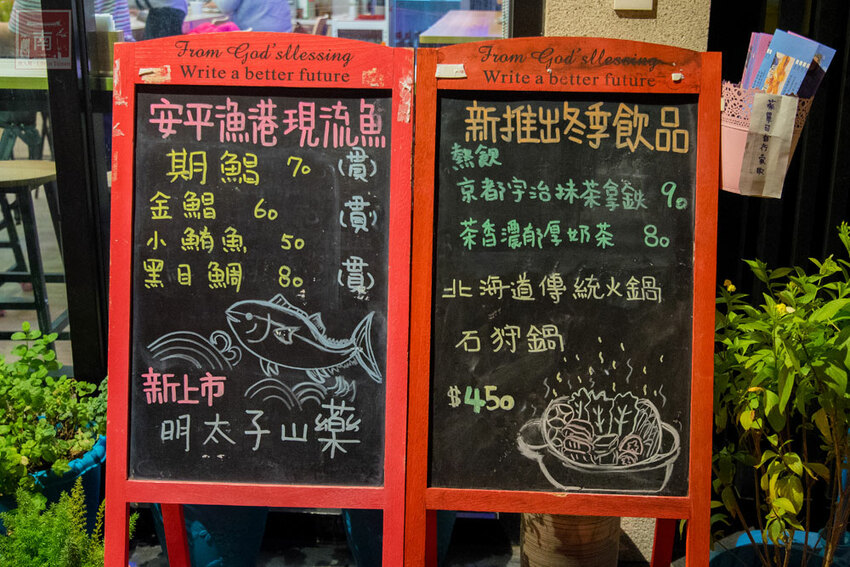 南
From God'sllessing
Write a better future
安平漁港現流魚
期鯧 70 (賣)
金鯧 60 (賣)
小鮪魚 50
黑目鯛 80 (賣)
新上市
明太子山藥
From God'sllessing
Write a better future
新推出冬季飲品
熱飲
京都宇治抹茶拿鉄 90
茶香濃郁厚奶茶 80
北海道傳統火鍋
石狩鍋
$450